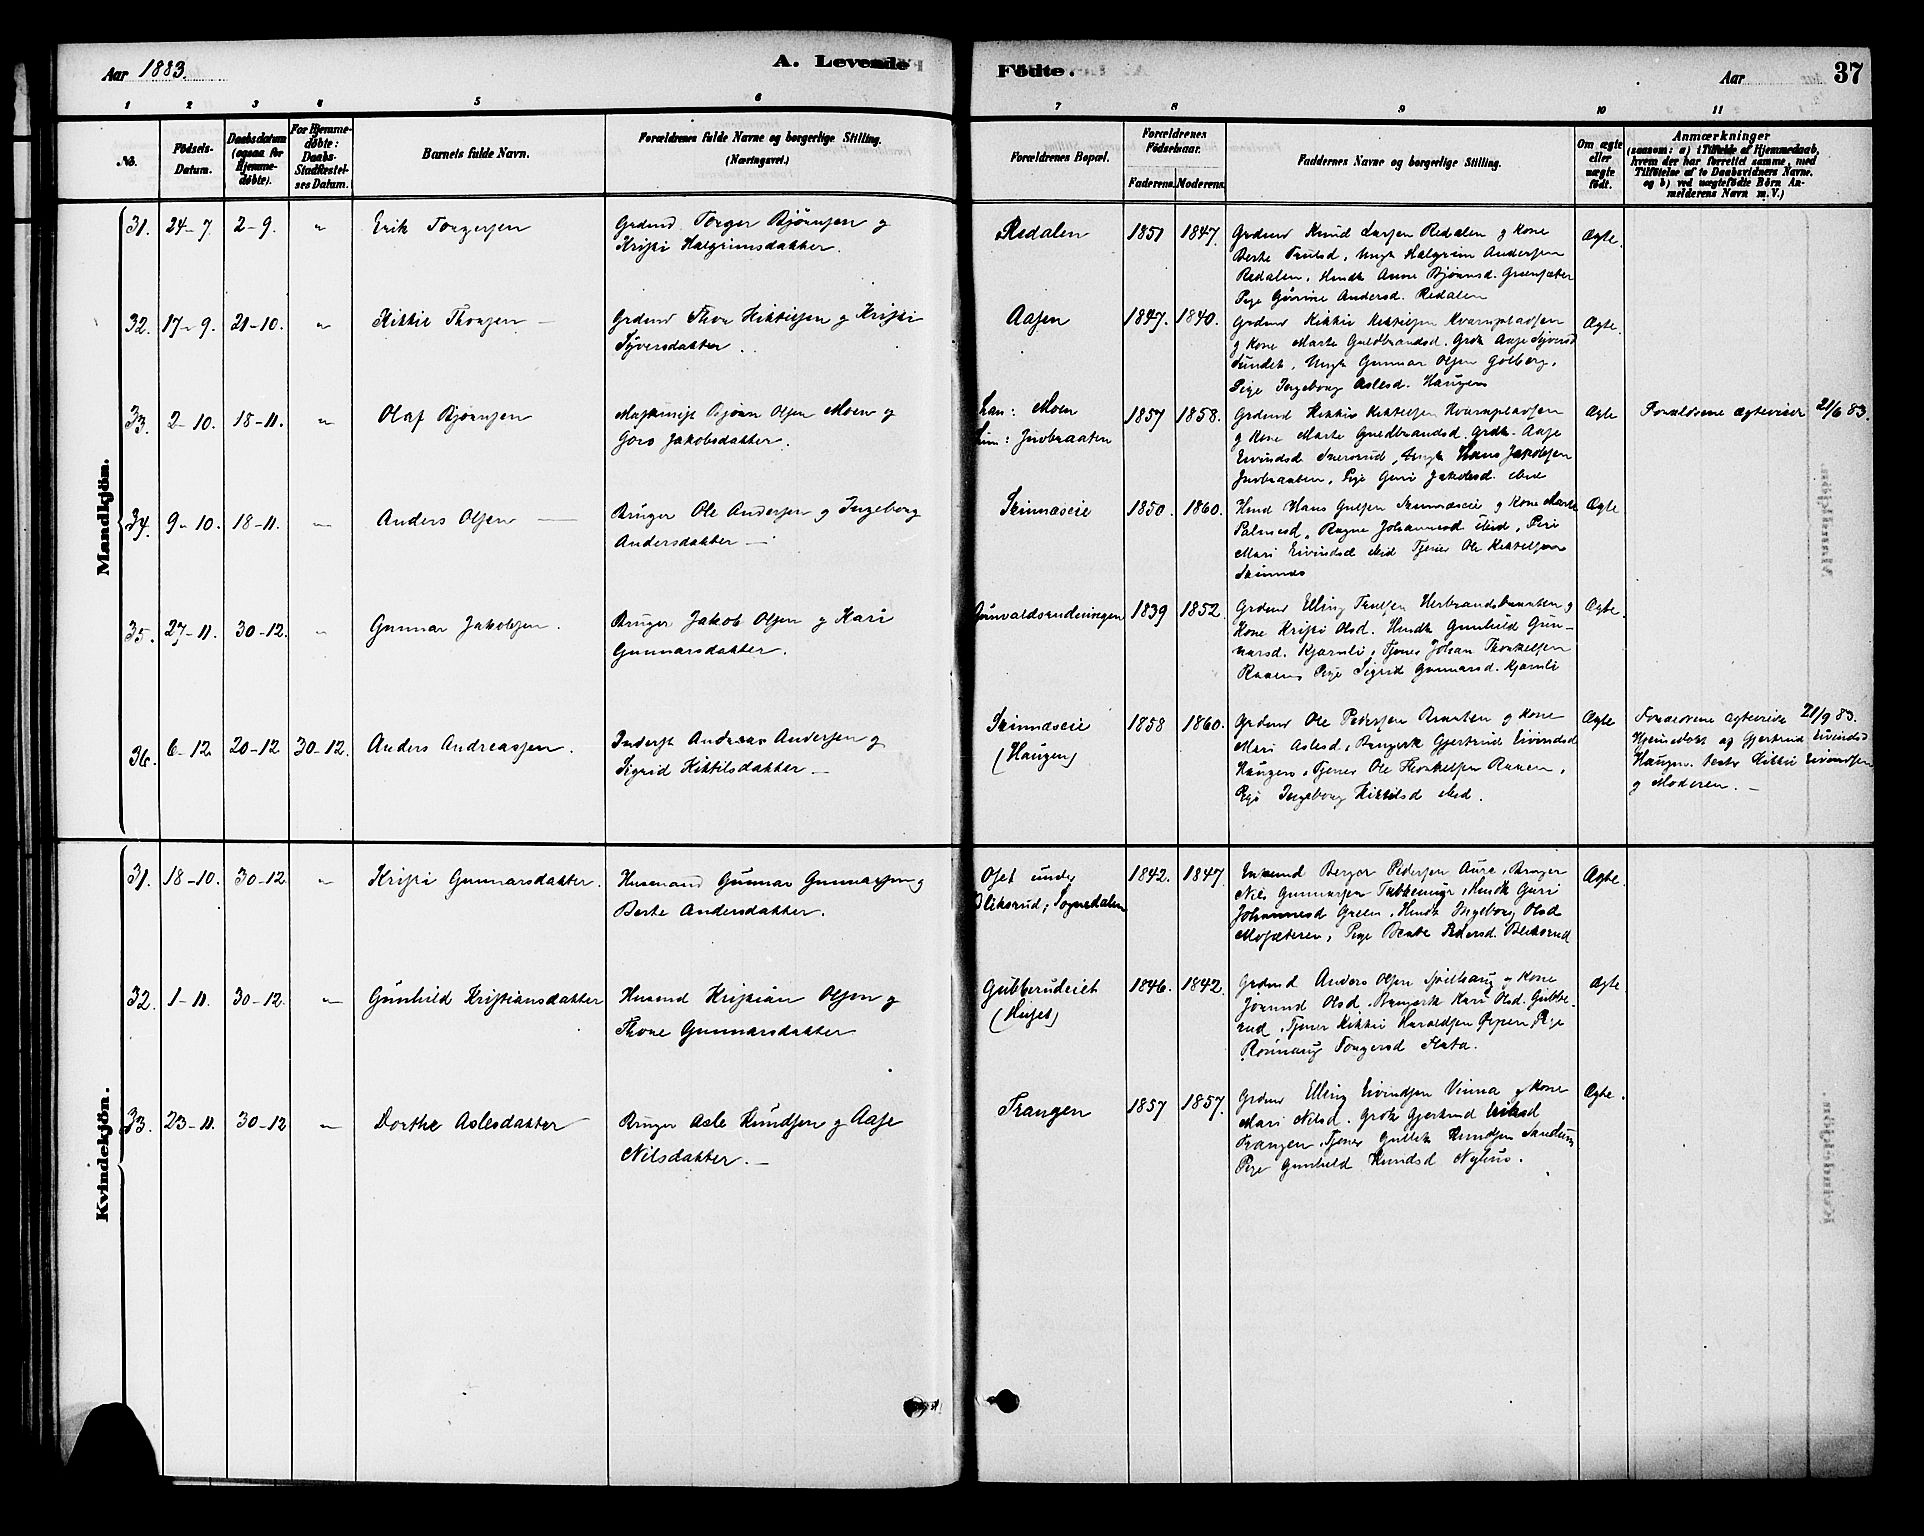 Aar 1883.
A. Levende
Födte.
Aar
37
1 2 3 4 5 6 7 8 9 10 11
No.
Födsels-
Datum.
Daabsdatum
(ogsaa for
Hjemme-
døbte).
For Hjemme-
døbte:
Daabs-
Stadfæstel-
ses Datum.
Barnets fulde Navn.
Forældrenes fulde Navne og borgerlige Stilling.
(Næringsvei.)
Forældrenes Bopæl.
Forældrenes
Födselsaar.
Faderens. Moderens.
Faddernes Navne og borgerlige Stilling.
Om ægte
eller
uægte
født.
Anmærkninger
(saasom: a) i Tilfælde af Hjemmedaab,
hvem der har forrettet samme, med
Tilföielse af to Daabsvidners Navne,
og b) ved uægtefödte Börn An-
melderens Navn m. V.)
Mandkjön.
31. 24-7. 2-9. " Erik Torgersen
Grdmd Torger Bjørnsen og
Kristi Halgrimsdatter.
Redalen 1851 1847.
Grdmd Knud Larsen Redalen og Kone
Berte Trulsd. Ungk Halgrim Andersen
Redalen, Hmdk Anne Bjørnsd. Grænsæter
Pige Gurine Andersd. Redalen
Ægte.
32. 17-9. 21-10. " Kittil Thorsen
Grdmd Thor Kittilsen og Kristi
Syversdatter.
Aasen 1847. 1840.
Grdmd Kittil Kittilsen Kvarnpladsen
og Kone Marte Guldbrandsd. Grdk Aase Syversd
Sundet, Ungk Gunnar Olsen Golberg,
Pige Ingeborg Aslesd. Haugen
Ægte.
33. 2-10. 18-11. " Olaf Bjørnsen
Maskinist Bjørn Olsen Moen og
Goro Jakobsdatter.
Han: Moen
Hun: Juvbraaten
1857 1858.
Grdmd Kittil Kittilsen Kvarnpladsen
og Kone Marte Guldbrandsd. Grdk. Aase
Eivindsd Snersrud, Ungk Hans Jakobsen
Juvbraaten, Pige Guri Jakobsd. ibid
Ægte
Forældrene Ægteviede 21/6 83.
34. 9-10. 18-11. Anders Olsen
Bruger Ole Andersen og Ingeborg
Andersdatter
Skinnæseie 1850. 1860.
Hmd Hans Gulsen Skinnæseie og Kone Marte
Palmesd, Ragne Johannesd ibid, Pige
Mari Eivindsd ibid Tjener Ole Kittelsen
Skinnes
Ægte
35. 27-11. 30-12. " Gunnar Jakobsen.
Bruger Jakob Olsen og Kari
Gunnarsdatter.
Gunvaldsrudeningen 1839 1852.
Grdmd Elling Trulsen Herbrandsbraaten og
Kone Kristi Olsd. Hmdk Gunhild Gun-
narsd. Kjørnli, Tjener Johan Thorkelsen
Raaen, Pige Sigrid Gunnarsd. Kjørnli
Ægte.
36. 6-12. 20-12 30-12. Anders Andreassen.
Inderst Andreas Andersen og
Sigrid Kittilsdatter
Skinnæseie
(Haugen)
1858 1860.
Grdmd Ole Pedersen Braaten og Kone
Mari Aslesd, Brugerk Gjertrud Eivindsd
Haugen, Tjener Ole Thorkelsen Raaen,
Pige Ingeborg Kittilsd ibid.
Ægte
Forældrene ægteviede 21/9 83.
Hjemmedøbt af Gjertrud Eivindsd
Haugen. Testes Kittil Eivindsen
og Moderen.
Kvindekjön.
31. 18-10. 30-12 " Kristi Gunnarsdatter.
Husmand Gunnar Gunnarsen og
Berte Andersdatter.
Oset under
Bliksrud, Sognedalen
1842. 1847.
Berger Pedersen Aure, Bruger
Nils Gunnarsen, Hmdk Guri
Johannesd Green, Hmdk Ingeborg Olsd
Mosæteren, Pige Beate Pedersd. Bleksrud
Ægte.
32. 1-11. 30-12. " Gunhild Kristiansdatter
Husmd Kristian Olsen og
Thone Gunnarsdatter
Gubberudeiet
(Huset)
1846. 1842.
Grdmd Anders Olsen og Kone
Jorund Olsd. Brugerk Kari Olsd. Gubbe-
rud, Tjener Kittil Haraldsen, Pige
Rønnaug Torgersd Slata.
Ægte
33. 23-11. 30-12 " Dorthe Aslesdatter
Bruger Asle Knudsen og Aase
Nilsdatter.
Trangen 1857 1857.
Grdmd Elling Eivindsen Vinna og Kone
Mari Nilsd. Grdk Gjertrud
Trangen, Tjener Gullik Knudsen Sandum
Pige Gunhild Knudsd Nyhus.
Ægte.